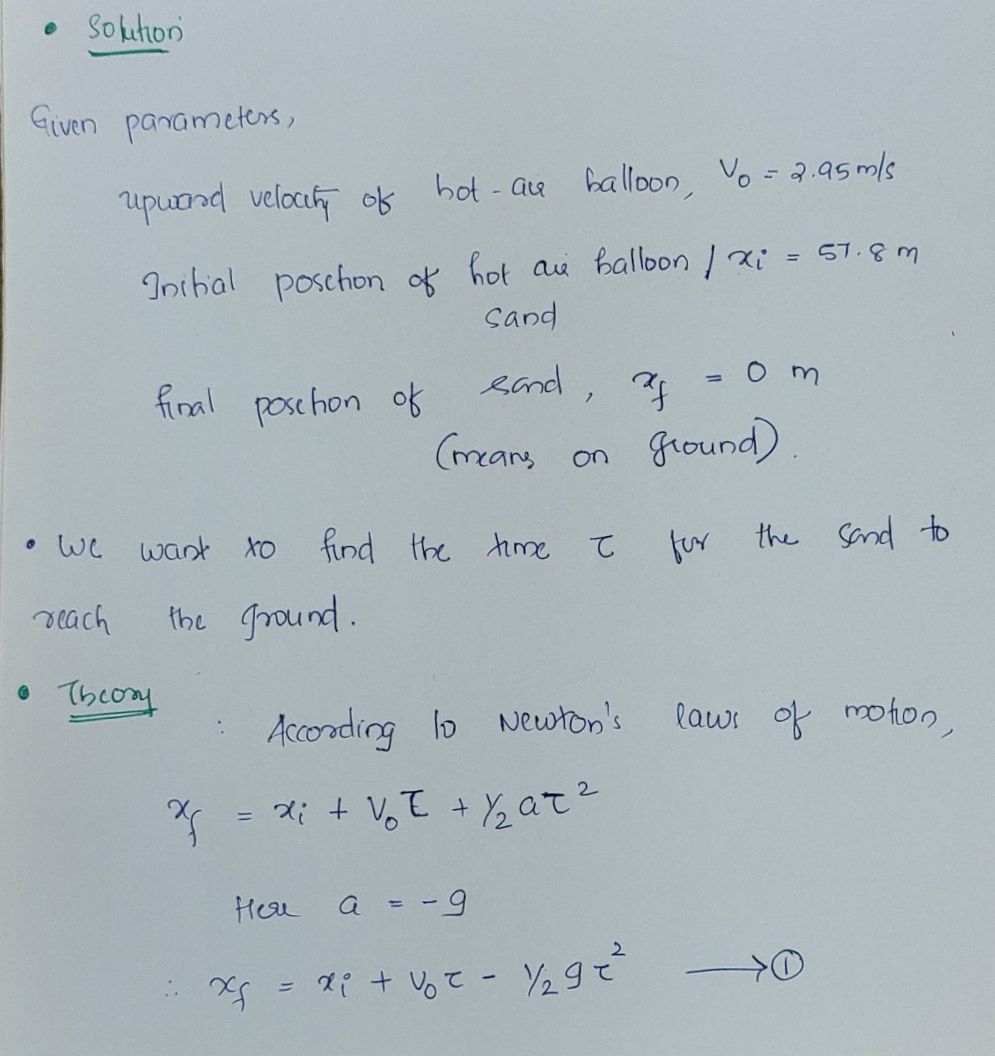 • Solution
Given parameters,
upward velocity of hot-air balloon, V₀ = 2.95 m/s
Initial position of hot air balloon / xᵢ = 57.8 m
sand
final position of sand, x_f = 0 m
(means on ground).
• We want to find the time τ for the sand to
reach the ground.
• Theory
: According to Newton's laws of motion,
x_f = xᵢ + V₀τ + ½ aτ²
Here a = -g
∴ x_f = xᵢ + V₀τ - ½ gτ² → ①